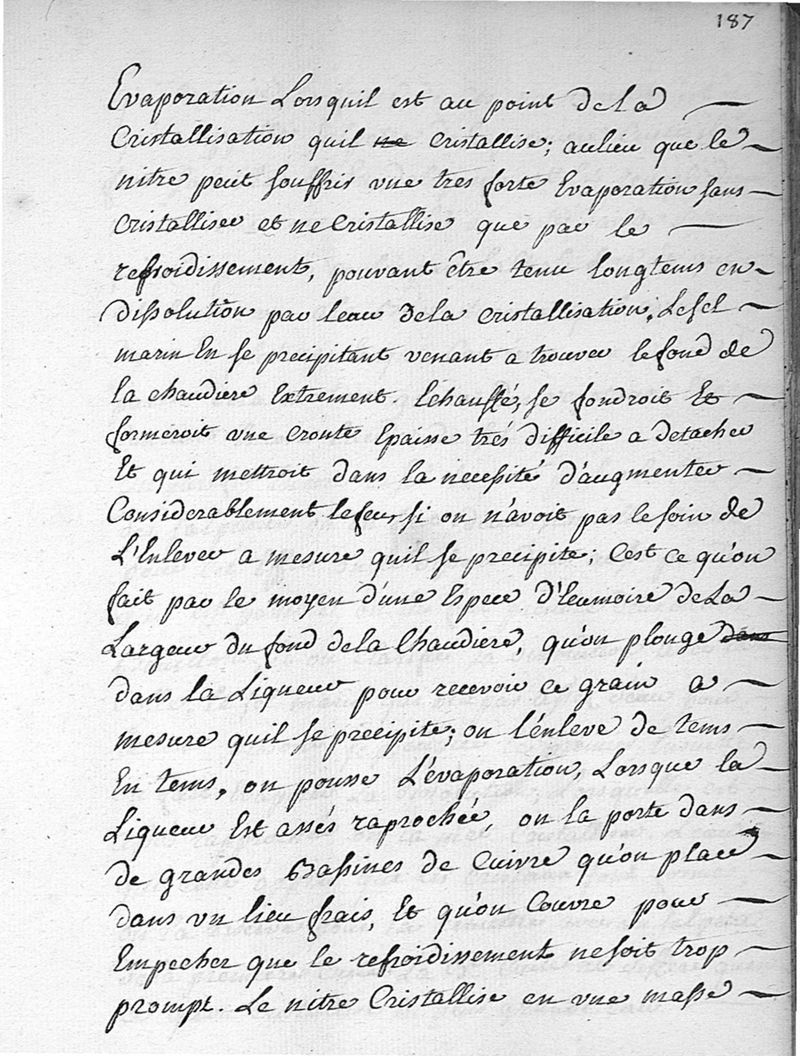 187
Evaporation Lorsquil est au point de la
Cristallisation quil ne cristallise; aulieu que le
nitre peut souffrir vne tres forte Evaporation sans
cristalliser et ne Cristallise que par le
refroidissement, pouvant être tenu longtems en
dissolution par leau de la cristallisation. Le sel
marin En se precipitant venant a trouver le fond de
la chaudiere Extrement Echauffé, se fondroit Et
formeroit une croute Epaisse trés difficile a detacher
Et qui mettroit dans la necessité d'augmenter
Considerablement le feu, si on n'avoit pas le soin de
L'Enlever a mesure quil se precipite; C'est ce qu'on
fait par le moyen d'une Espece d'Ecumoire de La
Largeur du fond de la Chaudiere, qu'on plonge dans
dans la Liqueur pour recevoir ce grain a
mesure quil se precipite; on l'énleve de tems
En tems, on pousse L'évaporation, Lorsque la
Liqueur Est assés raprochée, on la porte dans
de grandes Bassines de Cuivre qu'on place
dans vn lieu frais, Et qu'on Couvre pour
Empecher que le refroidissement ne soit trop
prompt. Le nitre Cristallise en vne masse